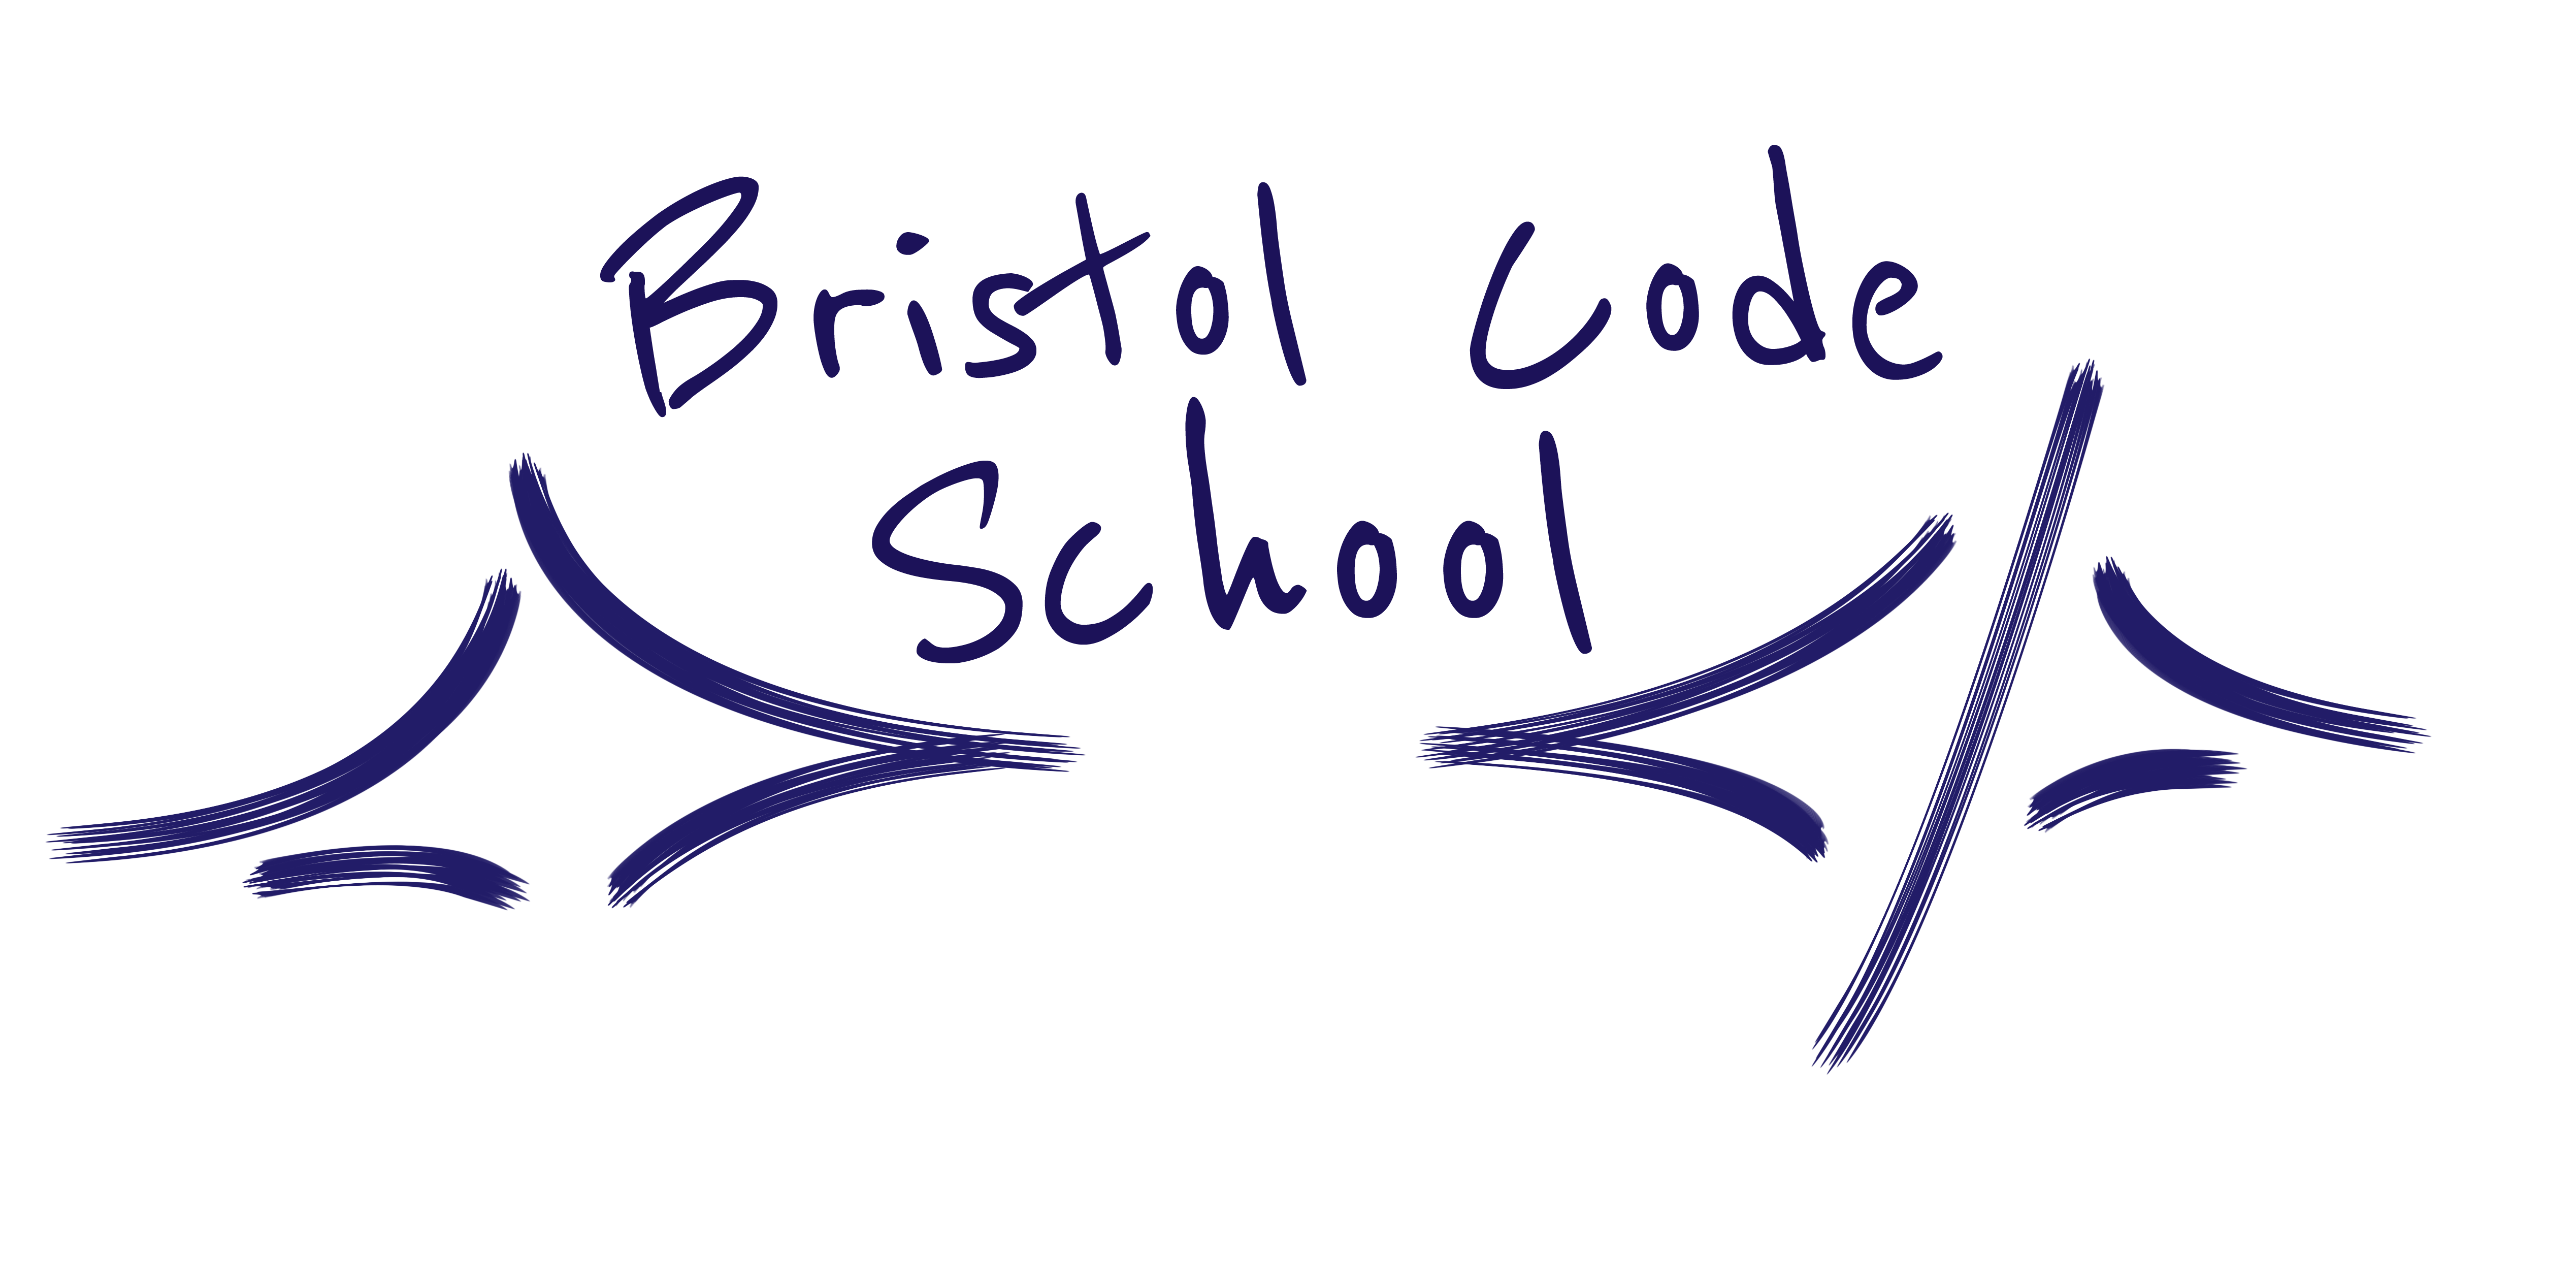 Bristol Code
School